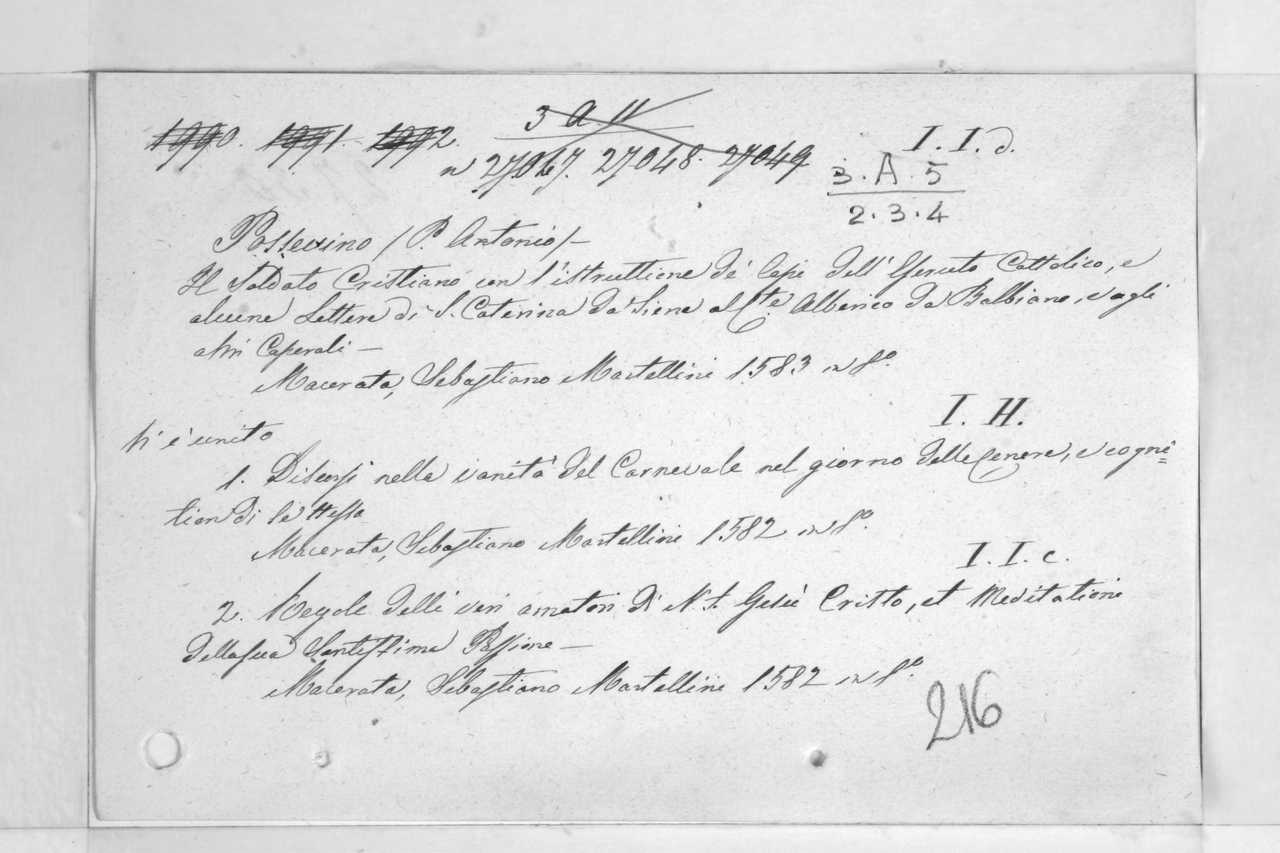 3 A 11
1990. 1991. 1992.
I. I. d.
n 27047. 27048. 27049
3. A. 5
2. 3. 4
Possevino (P. Antonio) —
Il Soldato Cristiano con l'istruttione de' Capi dell' Esercito Cattolico, e
alcune Lettere di S. Caterina da Siena al Cte. Alberico da Balbiano, e agli
altri Caporali —
Macerata, Sebastiano Martellini 1583 in 8º.
I. H.
V' è unito
1. Discorsi nella vanità del Carnevale nel giorno delle Cenere, e cogni=
tion di sè stesso
Macerata, Sebastiano Martellini 1582 in 8º.
I. I. c.
2. Regole delli veri amatori di N. S. Gesù Cristo, et Meditationi
della sua Santissima Passione —
Macerata, Sebastiano Martellini 1582 in 8º.
216